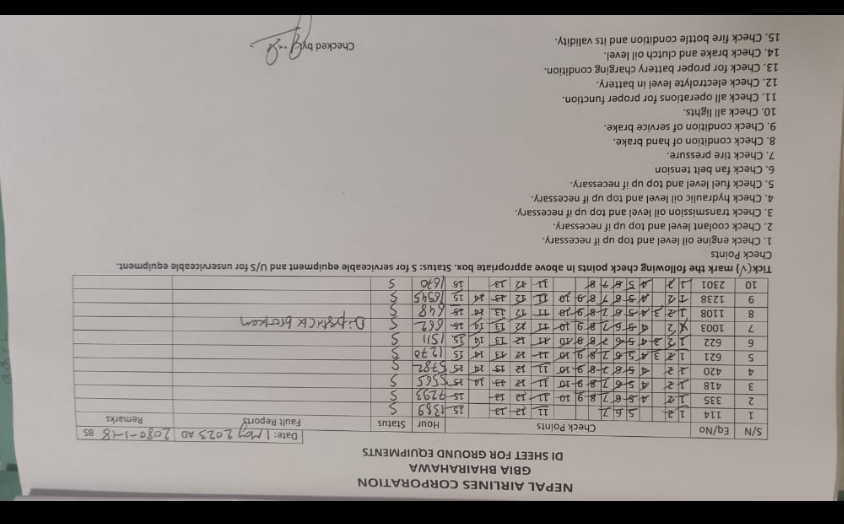 NEPAL AIRLINES CORPORATION
GBIA BHAIRAHAWA
DI SHEET FOR GROUND EQUIPMENTS
Date: 1 May 2023 AD 2080-1-18 BS
S/N Eq/No Check Points Hour Status Fault Reports Remarks
1 114 1 2 5 6 7 11 12 13 15 1389 S
2 335 1 2 4 5 6 7 8 9 10 11 12 13 15 7293 S
3 418 1 2 4 5 6 7 8 9 10 11 12 13 14 15 5565 S
4 420 1 2 4 5 6 7 8 9 10 11 12 13 14 15 5782 S
5 621 1 2 3 4 5 6 7 8 9 10 11 12 13 14 15 1270 S
6 622 1 2 3 4 5 6 7 8 9 10 11 12 13 14 15 1511 S
7 1003 X 2 4 5 6 7 8 9 10 11 12 13 14 15 662 S Dipstick broken
8 1108 1 2 3 4 5 6 7 8 9 10 11 12 13 14 15 648 S
9 1238 1 2 4 5 6 7 8 9 10 11 12 13 14 15 16945 S
10 2301 1 2 4 5 6 7 8 11 12 13 15 1670 S
Tick(√) mark the following check points in above appropriate box. Status: S for serviceable equipment and U/S for unserviceable equipment.
Check Points
1. Check engine oil level and top up if necessary.
2. Check coolant level and top up if necessary.
3. Check transmission oil level and top up if necessary.
4. Check hydraulic oil level and top up if necessary.
5. Check fuel level and top up if necessary.
6. Check fan belt tension
7. Check tire pressure.
8. Check condition of hand brake.
9. Check condition of service brake.
10. Check all lights.
11. Check all operations for proper function.
12. Check electrolyte level in battery.
13. Check for proper battery charging condition.
14. Check brake and clutch oil level.
15. Check fire bottle condition and its validity.
Checked by